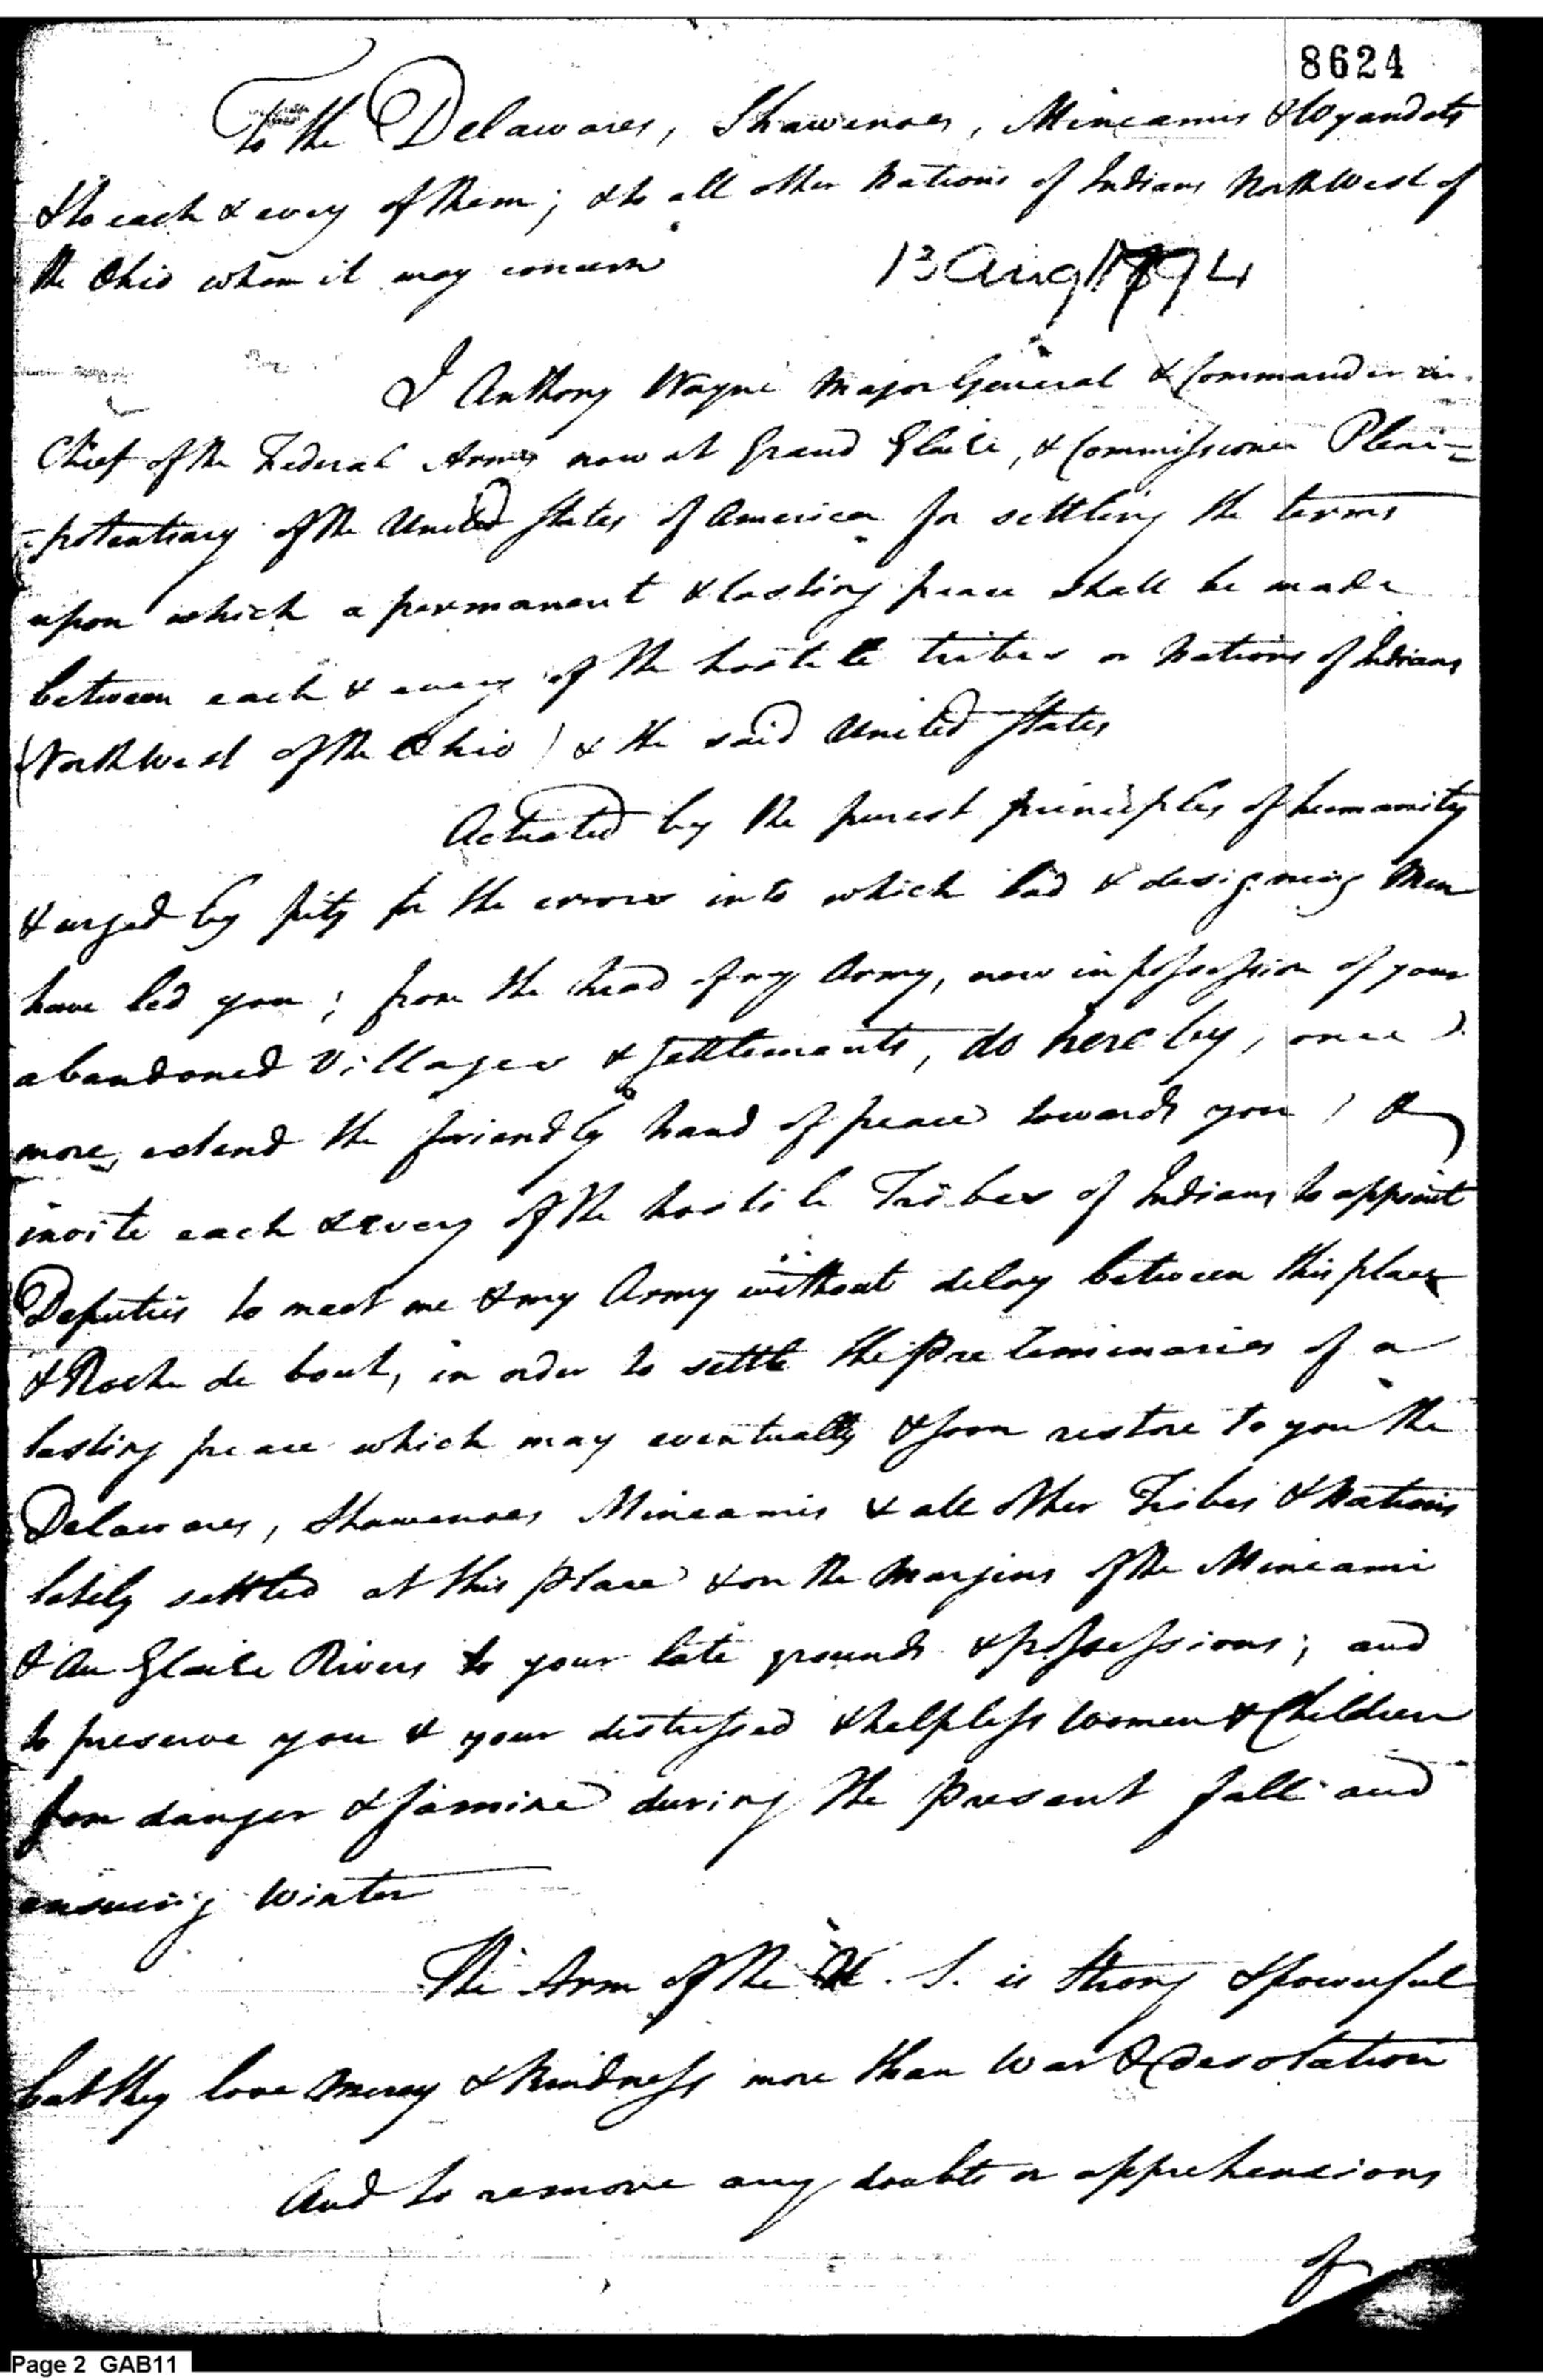 8624
To the Delawares, Shawenoes, Mineamis & Wyandots
& to each & every of them; & to all other Nations of Indians North West of
the Ohio whom it may concern
13 Aug 1794
I Anthony Wayne Major General & Commander in
Chief of the Federal Army now at Grand Glaize, & Commissioner Pleni=
=potentiary of the United States of America for settling the terms
upon which a permanent & lasting peace shall be made
between each & every of the hostile tribes or Nations of Indians
(North West of the Ohio) & the said United States
Actuated by the purest principles of humanity
& urged by pity for the errors into which bad & designing Men
have led you; from the head of my Army, now in possession of your
abandoned Villages & Settlements, do hereby, once
more, extend the friendly hand of peace towards you, &
invite each & every of the hostile Tribes of Indians to appoint
Deputies to meet me & my Army without delay between this place
& Roche de bout, in order to settle the preliminaries of a
lasting peace which may eventually & soon restore to you the
Delawares, Shawenoes Mineamis & all other Tribes & Nations
lately settled at this place & on the Margins of the Mineami
& Au Glaize Rivers to your late grounds & possessions; and
to preserve you & your distressed & helpless Women & Children
from danger & famine during the present fall and
ensuing Winter
The Arm of the U. S. is strong & powerful
but they love Mercy & Kindness more than War & desolation
And to remove any doubts or apprehensions
of
Page 2 GAB11